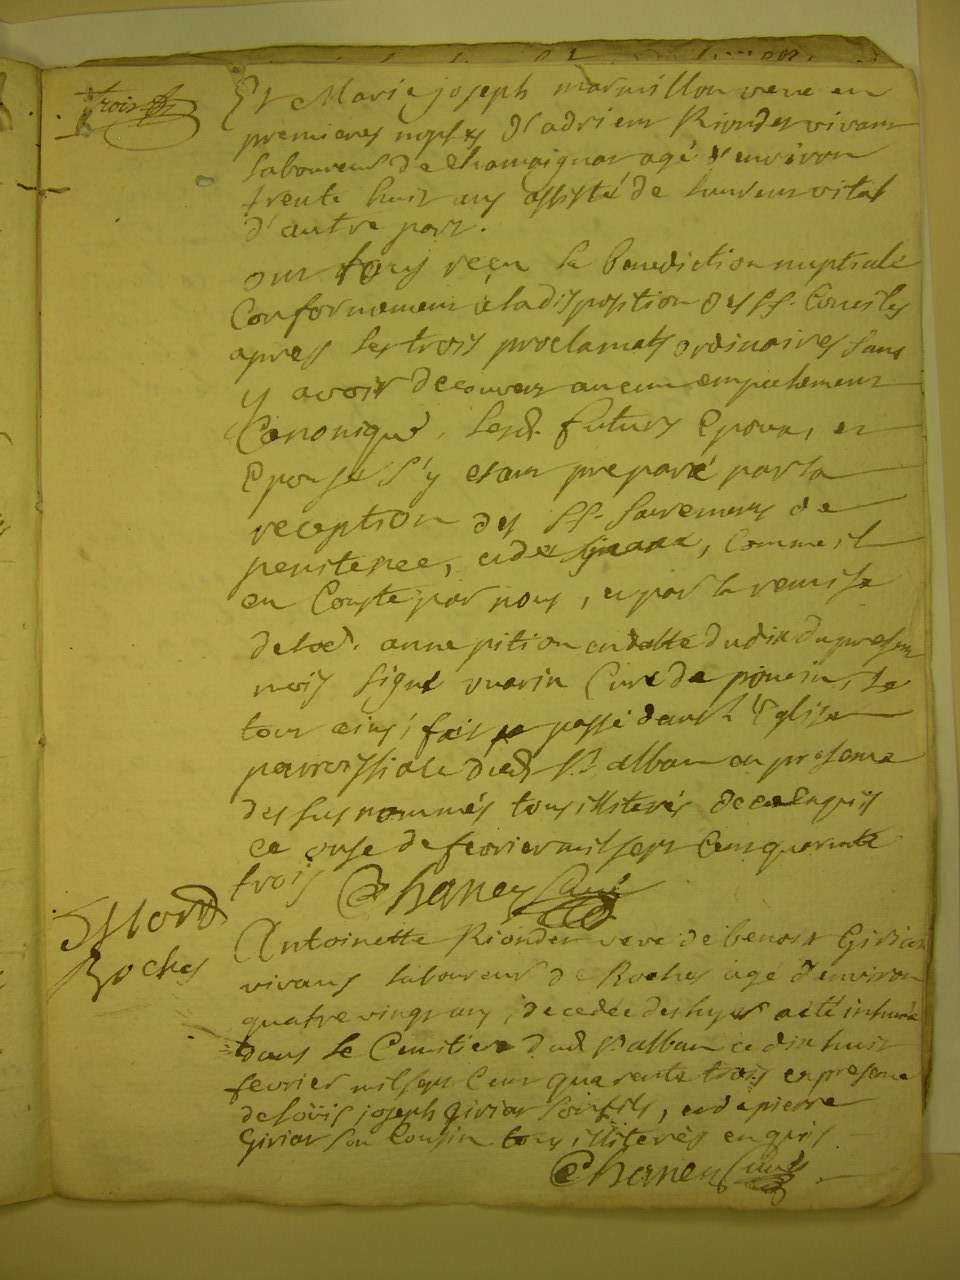 trois
Et Marie joseph marmillon veve en
premieres nopses d'adrien Rionder vivant
laboureur de Chamaignar agé d'environ
trente huit ans assisté de laurent vital
d'autre part.
ont tous reçu la benediction nuptiale
Conformement a la disposition des SS. Conciles
apres les trois proclamats ordinaires sans
y avoir decouvert aucun empechement
Canonique, lesd. futurs Epoux, et
Epouse s'y etant preparé par la
reception des SS. Sacremens de
penitence, et de, Comme il
en Conste par nous, et par la remise
de lad. anne pition en datte du dix du present
mois signé vuarin Curé de, le
tout ainsi fait passé dans l'Eglise
parroissiale dud. St. alban en presence
des sus nommés tous illiterés de ce enquis
ce onse de fevrier mil sept Cent quarente
trois Chaney Curé
Mort
Roches
Antoinette Rionder veve de benoit Giriar
vivant laboureur de Roches agé d'environ
quatre vingt ans decedée des hyer a été inhumée
dans le Cemitiere dud. St. alban ce dix huit
fevrier mil sept Cent quarente trois en presence
de loüis joseph Giriar son fils, et de pierre
Giriar son Cousin tous illiterés enquis.
Chaney Curé